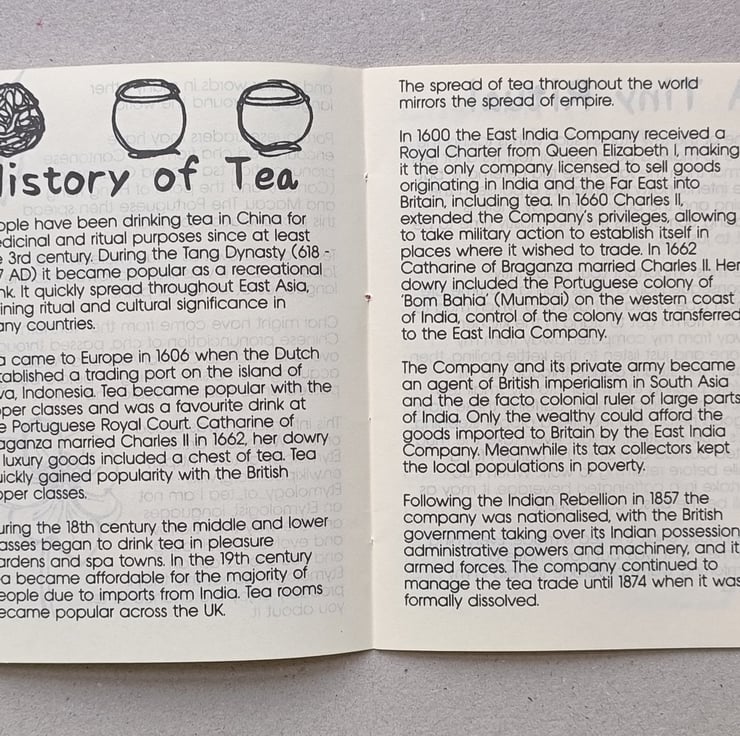 History of Tea
ople have been drinking tea in China for
edicinal and ritual purposes since at least
e 3rd century. During the Tang Dynasty (618 -
7 AD) it became popular as a recreational
nk. It quickly spread throughout East Asia,
ining ritual and cultural significance in
any countries.
a came to Europe in 1606 when the Dutch
tablished a trading port on the island of
va, Indonesia. Tea became popular with the
per classes and was a favourite drink at
e Portuguese Royal Court. Catharine of
aganza married Charles II in 1662, her dowry
luxury goods included a chest of tea. Tea
uickly gained popularity with the British
pper classes.
uring the 18th century the middle and lower
asses began to drink tea in pleasure
ardens and spa towns. In the 19th century
a became affordable for the majority of
eople due to imports from India. Tea rooms
ecame popular across the UK.
The spread of tea throughout the world
mirrors the spread of empire.
In 1600 the East India Company received a
Royal Charter from Queen Elizabeth I, making
it the only company licensed to sell goods
originating in India and the Far East into
Britain, including tea. In 1660 Charles II,
extended the Company's privileges, allowing
to take military action to establish itself in
places where it wished to trade. In 1662
Catharine of Braganza married Charles II. Her
dowry included the Portuguese colony of
'Bom Bahia' (Mumbai) on the western coast
of India, control of the colony was transferred
to the East India Company.
The Company and its private army became
an agent of British imperialism in South Asia
and the de facto colonial ruler of large parts
of India. Only the wealthy could afford the
goods imported to Britain by the East India
Company. Meanwhile its tax collectors kept
the local populations in poverty.
Following the Indian Rebellion in 1857 the
company was nationalised, with the British
government taking over its Indian possession
administrative powers and machinery, and it
armed forces. The company continued to
manage the tea trade until 1874 when it was
formally dissolved.